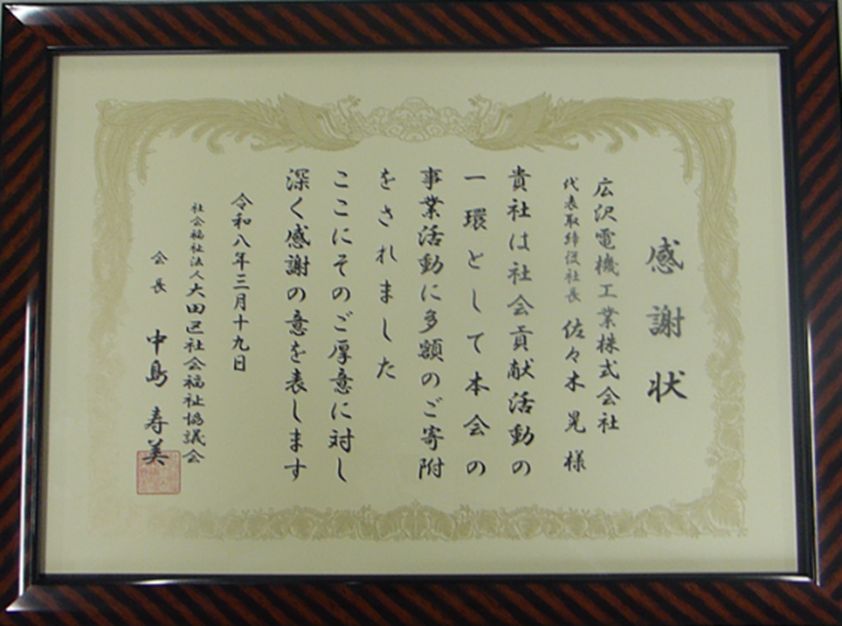 感謝状
広沢電機工業株式会社
代表取締役社長 佐々木 晃 様
貴社は社会貢献活動の
一環として本会の
事業活動に多額のご寄附
をされました
ここにそのご厚意に対し
深く感謝の意を表します
令和八年三月十九日
社会福祉法人大田区社会福祉協議会
会長 中島 寿美